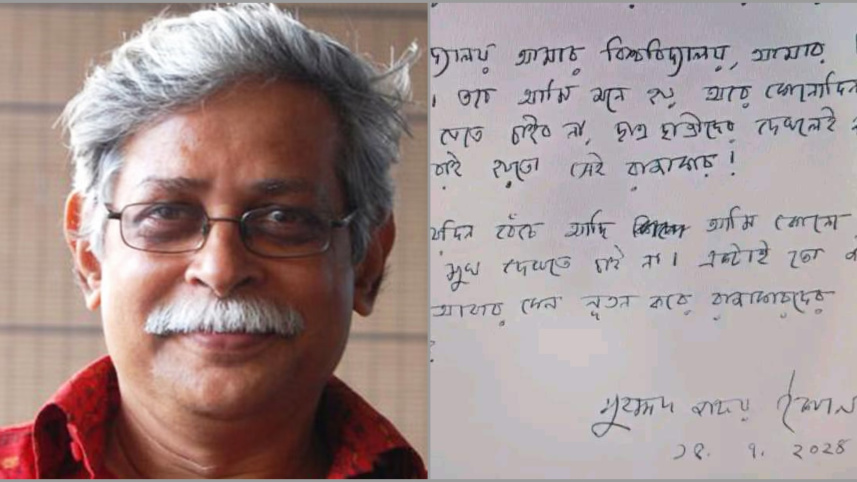 দ্যালয় আমার বিশ্ববিদ্যালয়, আমার
। তবে আমি মনে হয় আর কোনোদিন
যেতে চাইব না, ছাত্র ছাত্রীদের দেখলেই
রাই হয়তো সেই রাজাকার!
য়দিন বেঁচে আছি আমি কোনো
মুখ দেখতে চাই না। একটাই তো
আবার কেন নূতন করে রাজাকারদের
মুহম্মদ জাফর ইকবাল
১৬. ৭. ২০২৪